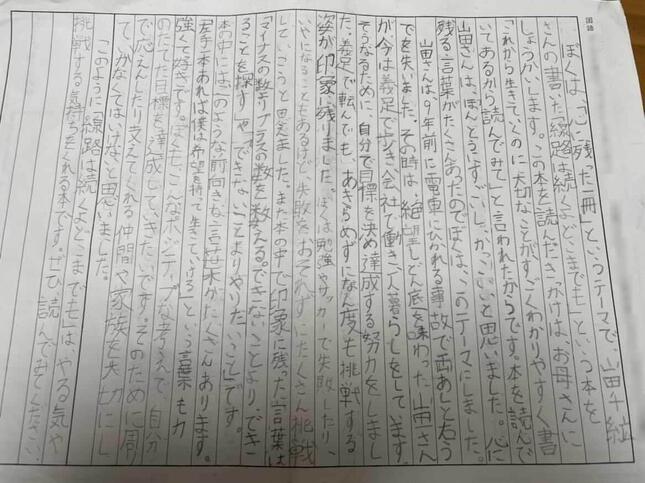 国語
ぼくは、「心に残った一冊」というテーマで、山田千紘
さんの書いた「線路は続くよどこまでも」という本を
しょうかいします。この本を読んだきっかけは、お母さんに
「これから生きていくのに大切なことが、すごくわかりやすく書
いてあるから読んでみて」と言われたからです。本を読んで
山田さんは、ほんとうにすごいし、かっこいいと思いました。心に
残る言葉がたくさんあったのでぼくは、このテーマにしました。
山田さんは、9年前に電車にひかれる事故で両あしと右う
でを失いました。その時は、絶望、どん底を味わった山田さん
が、今は義足で歩き、会社で働き、一人暮らしをしています。
そうなるために、自分で目標を決め、達成する努力をしまし
た。義足で転んでも、あきらめずになん度も挑戦する
姿が印象に残りました。ぼくは勉強やサッカーで失敗したり、
いやになることもあるけど、失敗をおそれずにたくさん挑戦
していこうと思いました。また本の中で印象に残った言葉は
「マイナスの数よりプラスの数を数える。できないことよりできる
ことを探す」や「できないことよりやりたいこと」です。
本の中には、このような前向きな言葉がたくさんあります。
「左手一本あれば僕は希望を持って生きていける」という言葉も力
強くて好きです。ぼくも、こんなポジティブな考えで、自分
のたてた目標を達成していきたいです。そのために周り
で応えんしたり支えてくれる仲間や家族を大切にし
ていかなくてはいけないと思いました。
このように「線路は続くよどこまでも」は、やる気や
挑戦する気持ちをくれる本です。ぜひ読んでみてください。